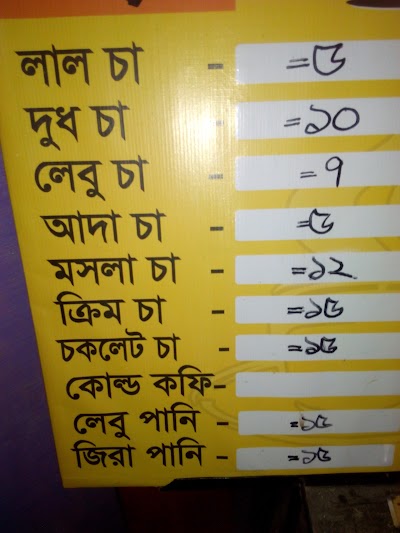 লাল চা - =৫
দুধ চা - =১০
লেবু চা - =৭
আদা চা - =৫
মসলা চা - =১২
ক্রিম চা - =১৫
চকলেট চা - =১৫
কোল্ড কফি-
লেবু পানি - =১৫
জিরা পানি - =১৫